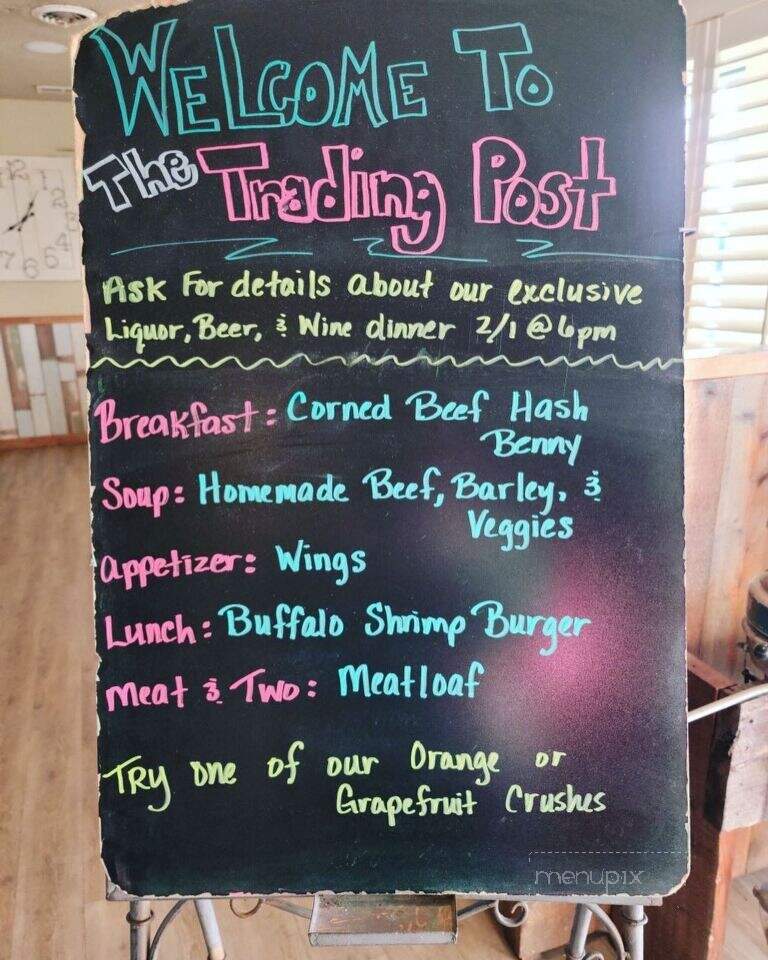 WELCOME TO
The Trading Post
Ask For details about our exclusive
Liquor, Beer, & Wine dinner 2/1 @ 6pm
Breakfast: Corned Beef Hash
Benny
Soup: Homemade Beef, Barley, &
Veggies
Appetizer: Wings
Lunch: Buffalo Shrimp Burger
Meat & Two: Meatloaf
TRY one of our Orange or
Grapefruit Crushes
menupix